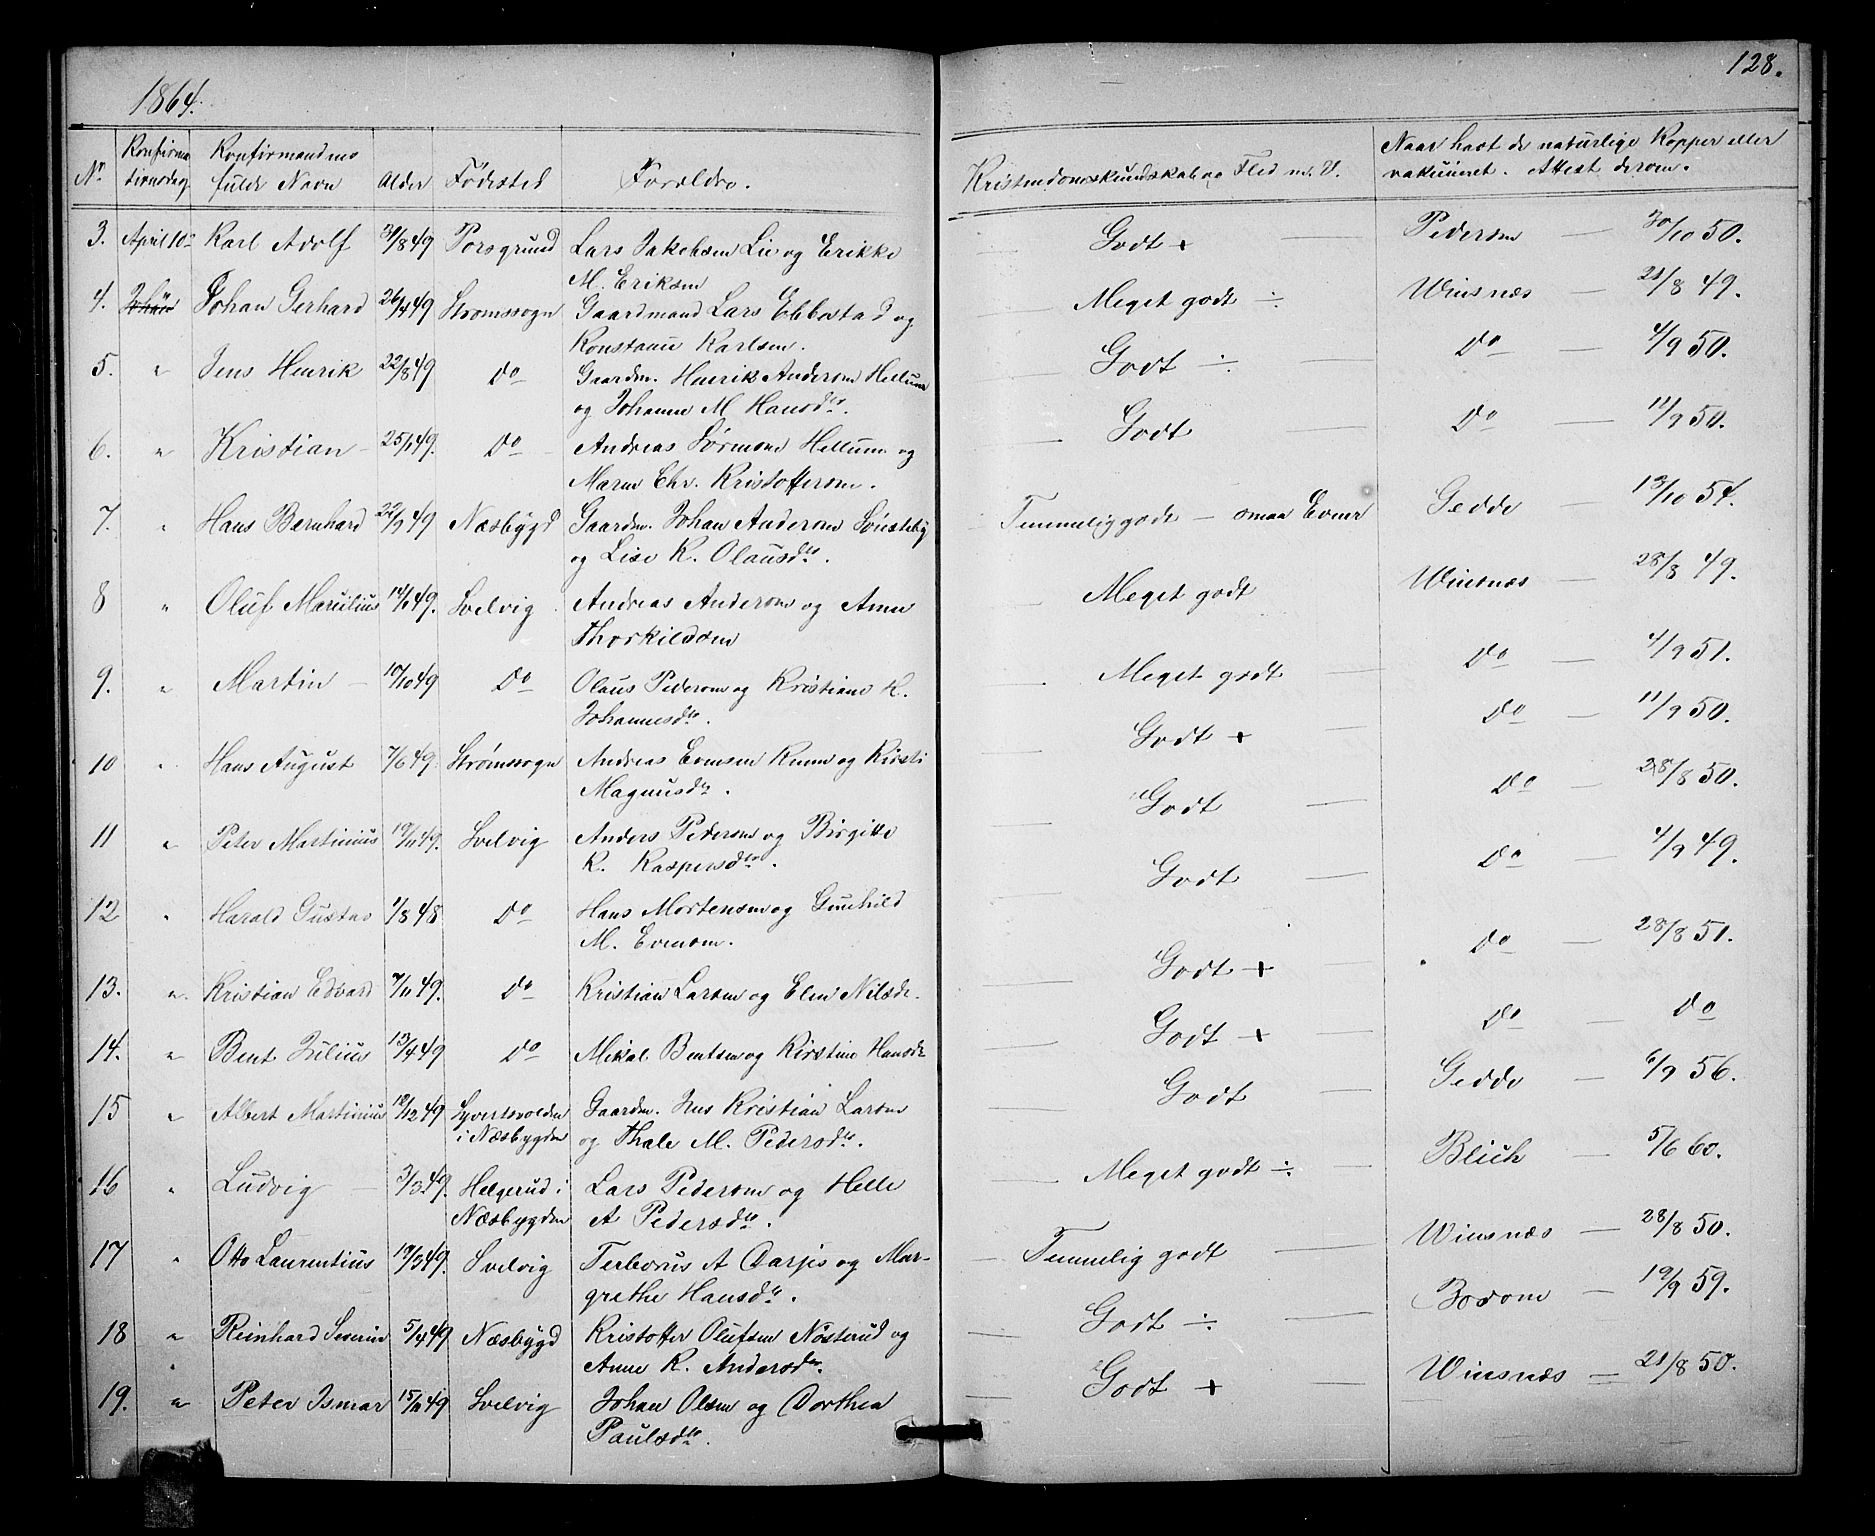 1864.
128.
No. Konfirmationsdag Konfirmandens fulde Navn Alder Fødested Forældre.
Kristendomskundskab og Flid m. V. Naar havt de naturlige Kopper eller vakcineret. Attest derom.
3. April 10de Karl Adolf 31/8 49 Porsgrund Lars Jakobsen Lie og Erikke
M. Eriksen Godt + — Pedersen — 30/10 50.
4. Johan Gerhard 26/4 49 Strømssogn Gaardmand Lars Ebbestad og
Konstance Karlsen. Meget godt ÷ Winsnæs — 21/8 49.
5. " Jens Henrik 22/8 49 Do Gaardm. Henrik Andersen Hellum
og Johanne M Hansdtr. Godt ÷ Do — 4/9 50.
6. " Kristian — 25/1 49. Do Andreas Sørensen Hellum og
Maren Chr. Kristoffersen. Godt — Do — 11/9 50.
7. " Hans Bernhard 22/9 49 Næsbygd Gaardm. Johan Andersen
og Lise K. Olausdtr. Temmelig godt — smaa Evner Gedde — 13/10 54.
8 " Oluf Marcilius 14/1 49. Svelvig Andreas Andersen og Anne
Thorkildsen Meget godt Winsnæs — 28/8 49.
9. " Martin — 10/10 49 Do Olaus Pedersen og Kristiane K.
Johannesdtr. Meget godt — Do — 4/9 51.
10 " Hans August 7/6 49. Strømssogn Andreas Evensen og Kirsti
Magnusdtr. Godt + — Do — 11/9 50.
11 " Peter Martinius 19/11 49. Svelvig Anders Pedersen og Birgitte
K. Kaspersdtr. Godt — Do — 28/8 50.
12 " Harald Gustav 1/8 48 Do Hans Mortensen og Gunhild
M. Evensen. Godt — Do — 4/9 49.
13. " Kristian Edvard 7/11 49. Do Kristian Larsen og Elen Nilsdr. Godt + — Do — 28/8 51.
14. " Bent Julius 13/4 49 Do Mikal Bentsen og Kirstine Hansdr Godt + — Do — Do
15 " Albert Martinius 12/12 49 Syvertsvolden
i Næsbygden Gaardm. Jens Kristian Larsen
og Thale M. Pedersdtr. Godt — Gedde — 6/9 56.
16 " Ludvig — 3/3 49. Helgerud i
Næsbygden Lars Pedersen og Helle
A Pedersdtr. Meget godt ÷ — Blich — 5/6 60.
17 " Otto Laurentius 19/3 49. Svelvig Terborus A Darjes og Mar-
grethe Hansdtr. Temmelig godt — Winsnæs — 28/8 50.
18 " Reinhard Severin 5/4 49 Næsbygd Kristoffer Olufsen Nøsterud og
Anne K. Andersdtr. Godt ÷ — — 19/9 59.
19. " Peter Ismar 15/11 49 Svelvig Johan Olsen og Dorthea
Paulsdtr. Godt + — Winsnæs — 21/8 50.